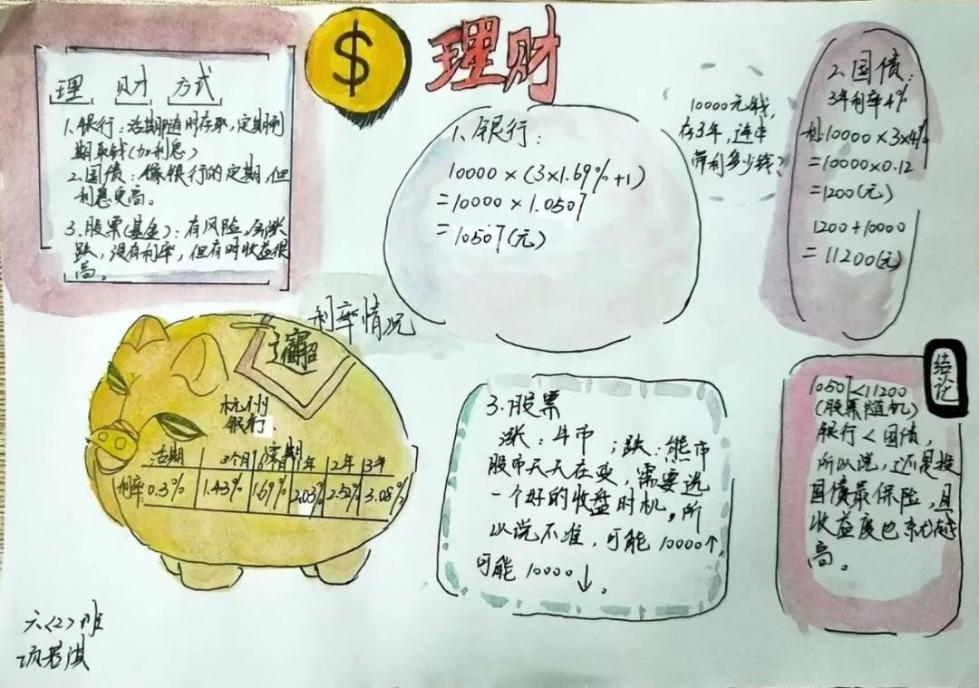 $
理财
理 财 方式
1、银行：活期随时存取，定期到
期取钱(加利息)
2、国债：像银行的定期，但
利息更高。
3、股票(基金)：有风险，会涨
跌，没有利率，但有时收益很
高。
10000元钱，
存3年，连本
带利多少钱？
1、银行：
10000×(3×1.69%+1)
=10000×1.0507
=10507(元)
2、国债：
3年利率4%
利:10000×3×4%
=10000×0.12
=1200(元)
1200+10000
=11200(元)
利率情况
杭州
银行
活期 定期
3个月 1年 2年 3年
利率 0.3% 1.43% 1.69% 2.03% 2.52% 3.08%
3、股票
涨：牛市；跌：熊市
股市天天在变，需要选
一个好的收盘时机，所
以说不准，可能10000↑，
可能10000↓。
结论
10507<11200
(股票随机)
银行<国债，
所以说，还是投
国债最保险，且
收益度也就越
高。
六<2>班